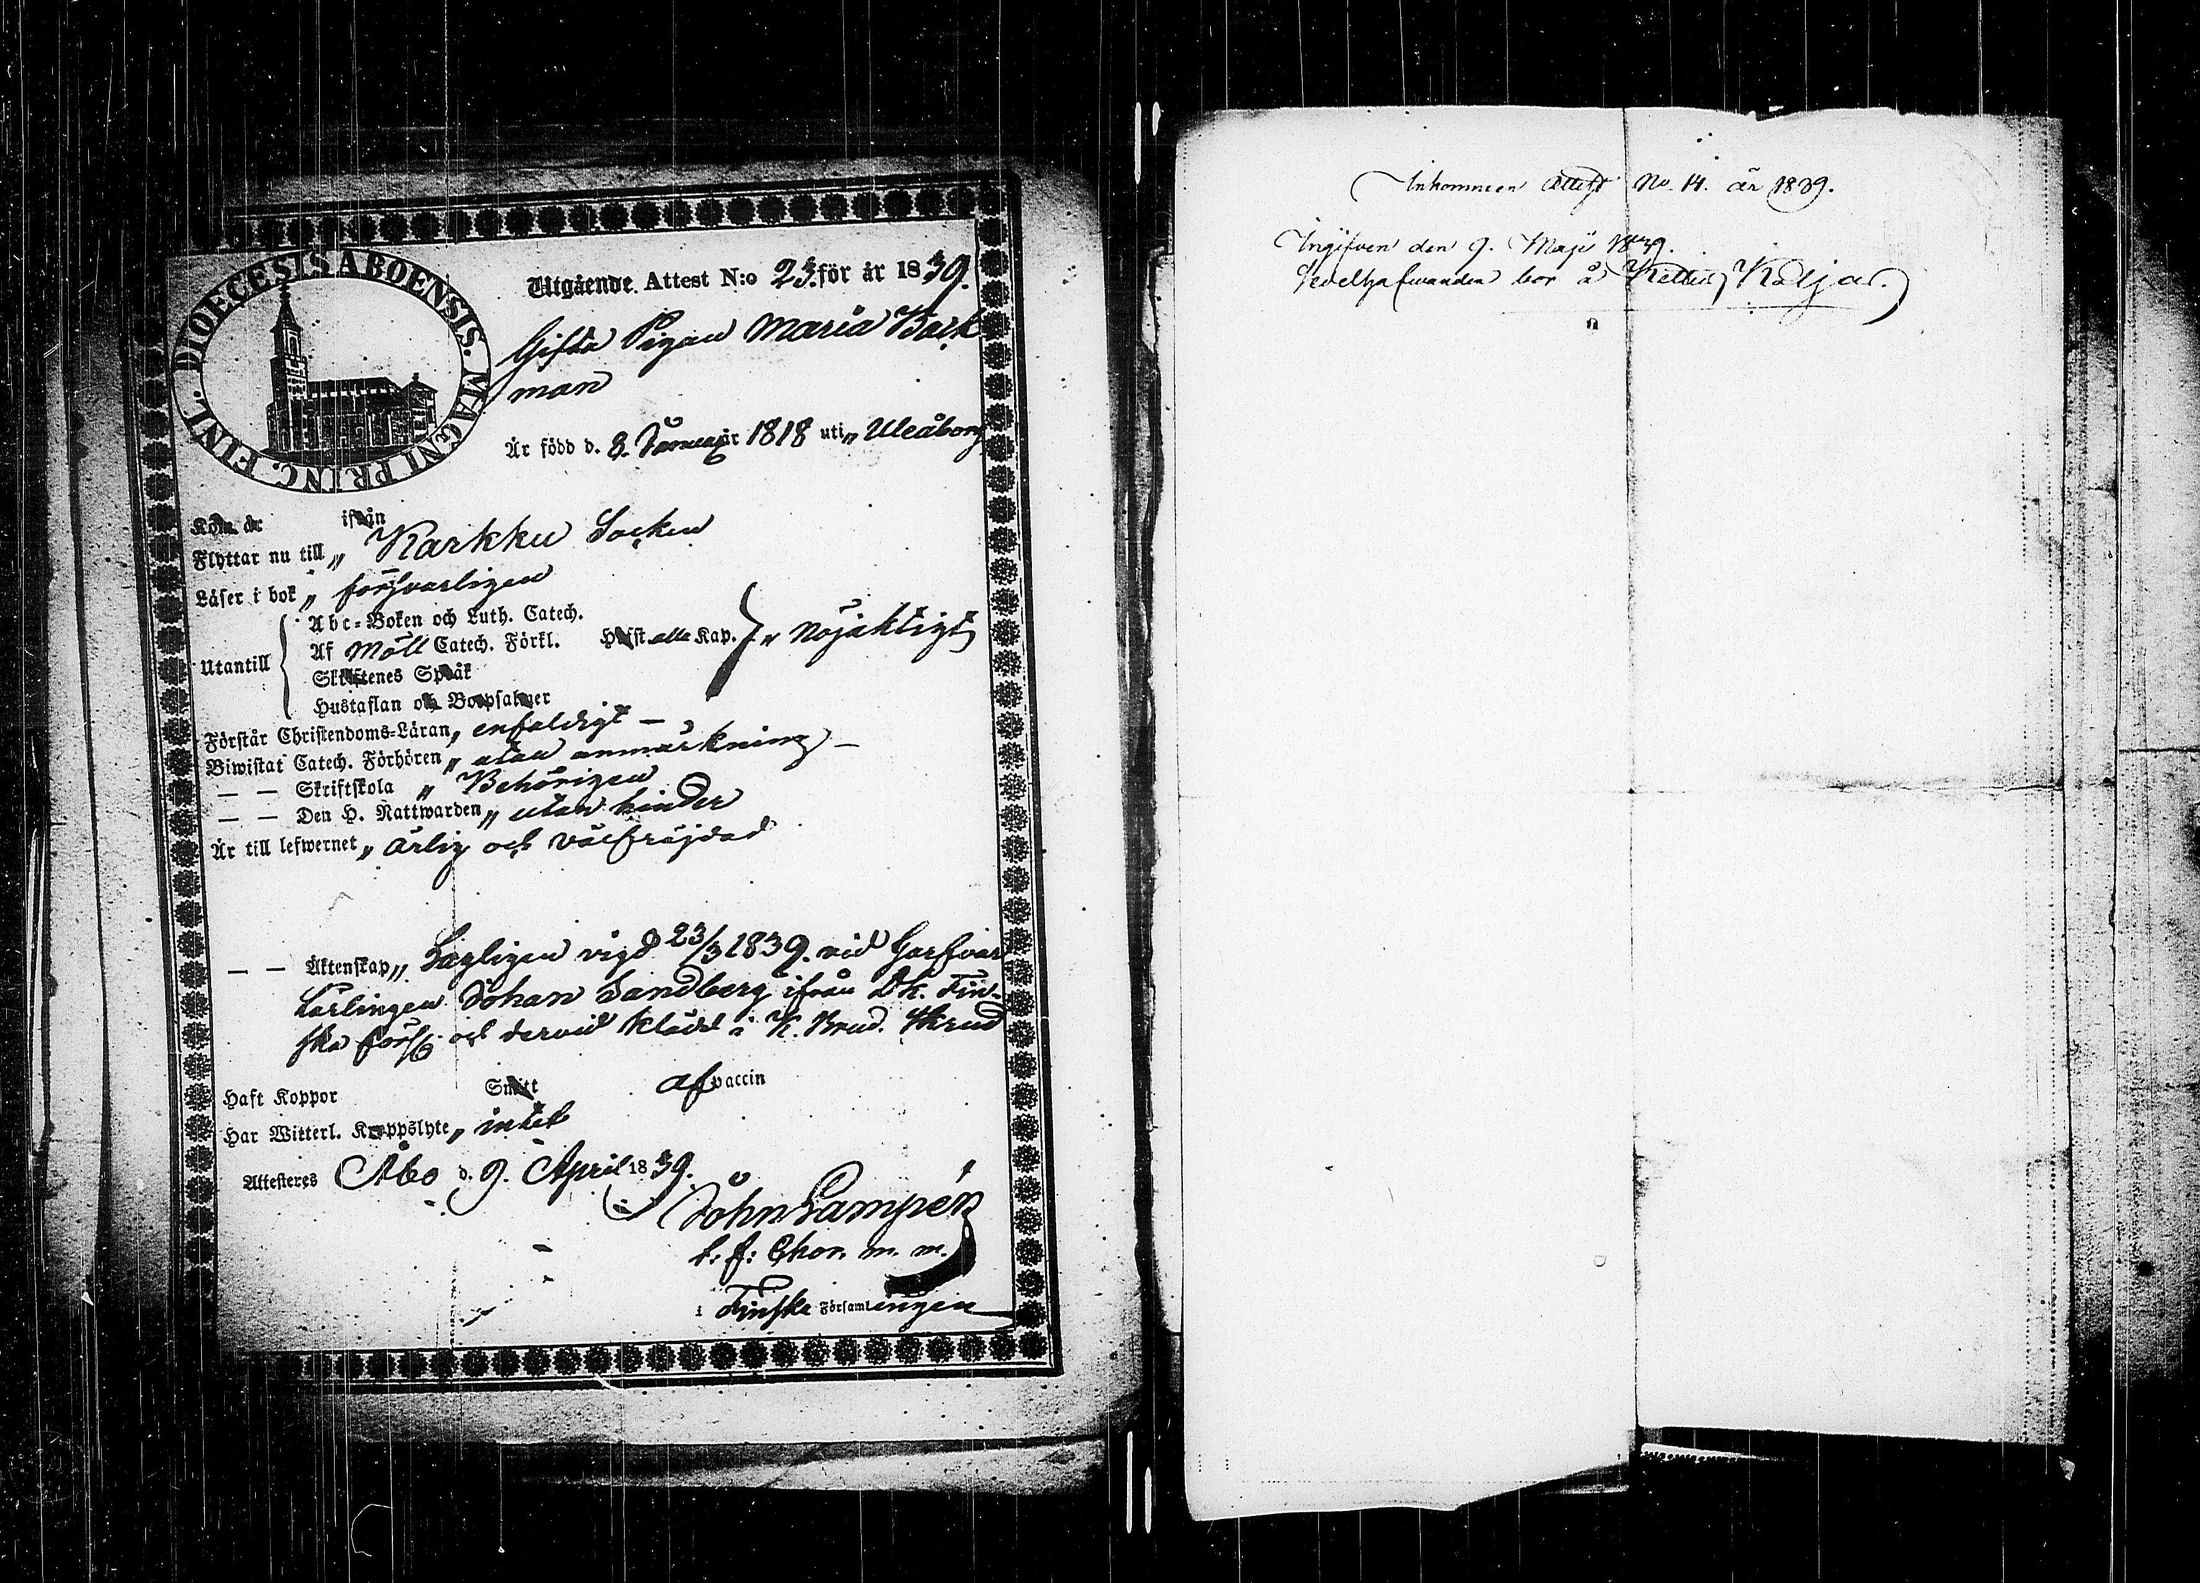 DIOECESIS ABOENSIS. MAGNI PRINC. FINL.
Utgående Attest N:o 23. för år 1839.
Gifta Pigan Maria Back
man
Är född d. 8. Januar 1818 uti „ Uleåborg
Kom år ifrån
Flyttar nu till „ Karkku Socken
Läser i bok „ försvarligen
Abc-Boken och Luth. Catech.
Utantill Af Möll Catech. Förkl. Hust. alla Kap. „ Nöjaktigt
Skriftenes Språk
Hustaflan och Botpsalmer
Förstår Christendoms-Läran „ enfaldigt —
Biwistat Catech. Förhören „ utan anmärkning —
— — Skriftskola „ Behörigen
— — Den H. Nattwarden „ utan hinder
Är till lefwernet „ ärlig och välfräjdad
— — Äktenskap „ Lagligen vigd 23/3 1839. vid Garfvar
Lärlingen Johan Sandberg ifrån Dk. Fin-
ska förs. och dervid klädd i K. Brud. Skrud
Haft Koppor Smitt af vaccin
Har Witterl. Kroppslyte „ intet
Attesteres Åbo d. 9. April 1839.
John Lampén
t. f: Chor. m. m.
i Finska Församlingen
Inkommen Attest No. 14. år 1839.
Ingifven den 9. Maji 1839.
Sedelhafwanden bor å Kölja.